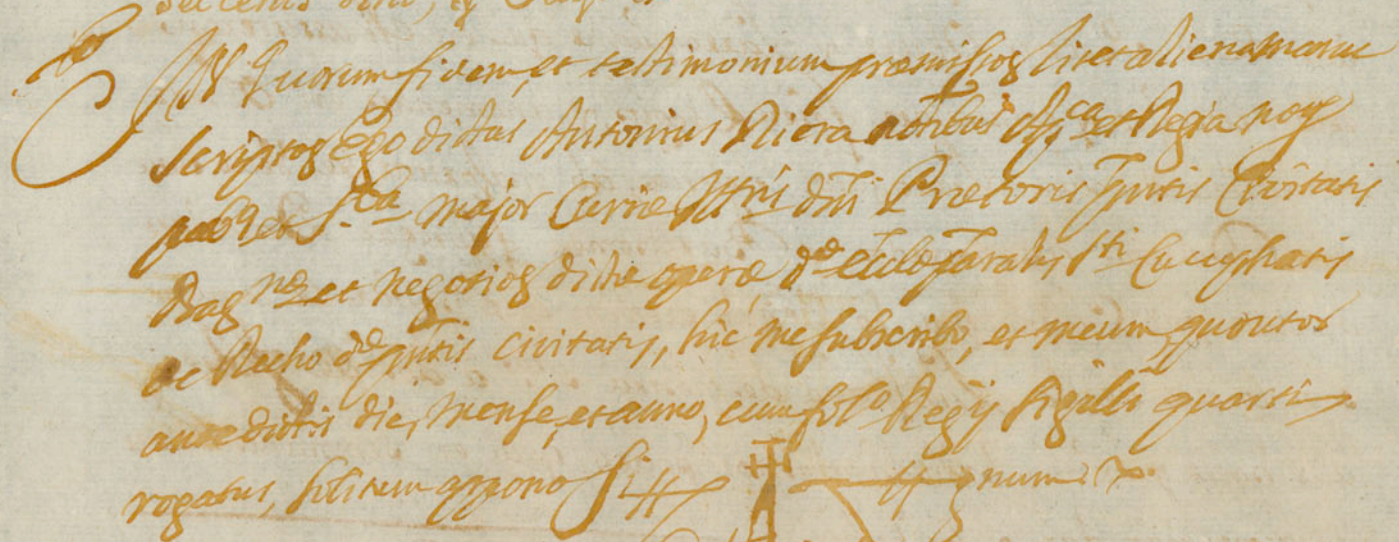 In Quorum fidem, et testimonium præmissor. licet aliena manu
scriptor. Ego dictus Antonius Riera notibus App.ca et Regia noy
pub9 et S.ria major Curiæ Ittris dñi Prætoris Pntis Civitatis
et negotior. dictæ operæ d.æ Sti Cucuphatis
de Recho d.æ pntis civitatis, hic me subscribo, et meum, quo utor
antedictis die, mense, et anno, cum fol.o Regij sigilli quarti,
rogatus, solitum appono Sig num